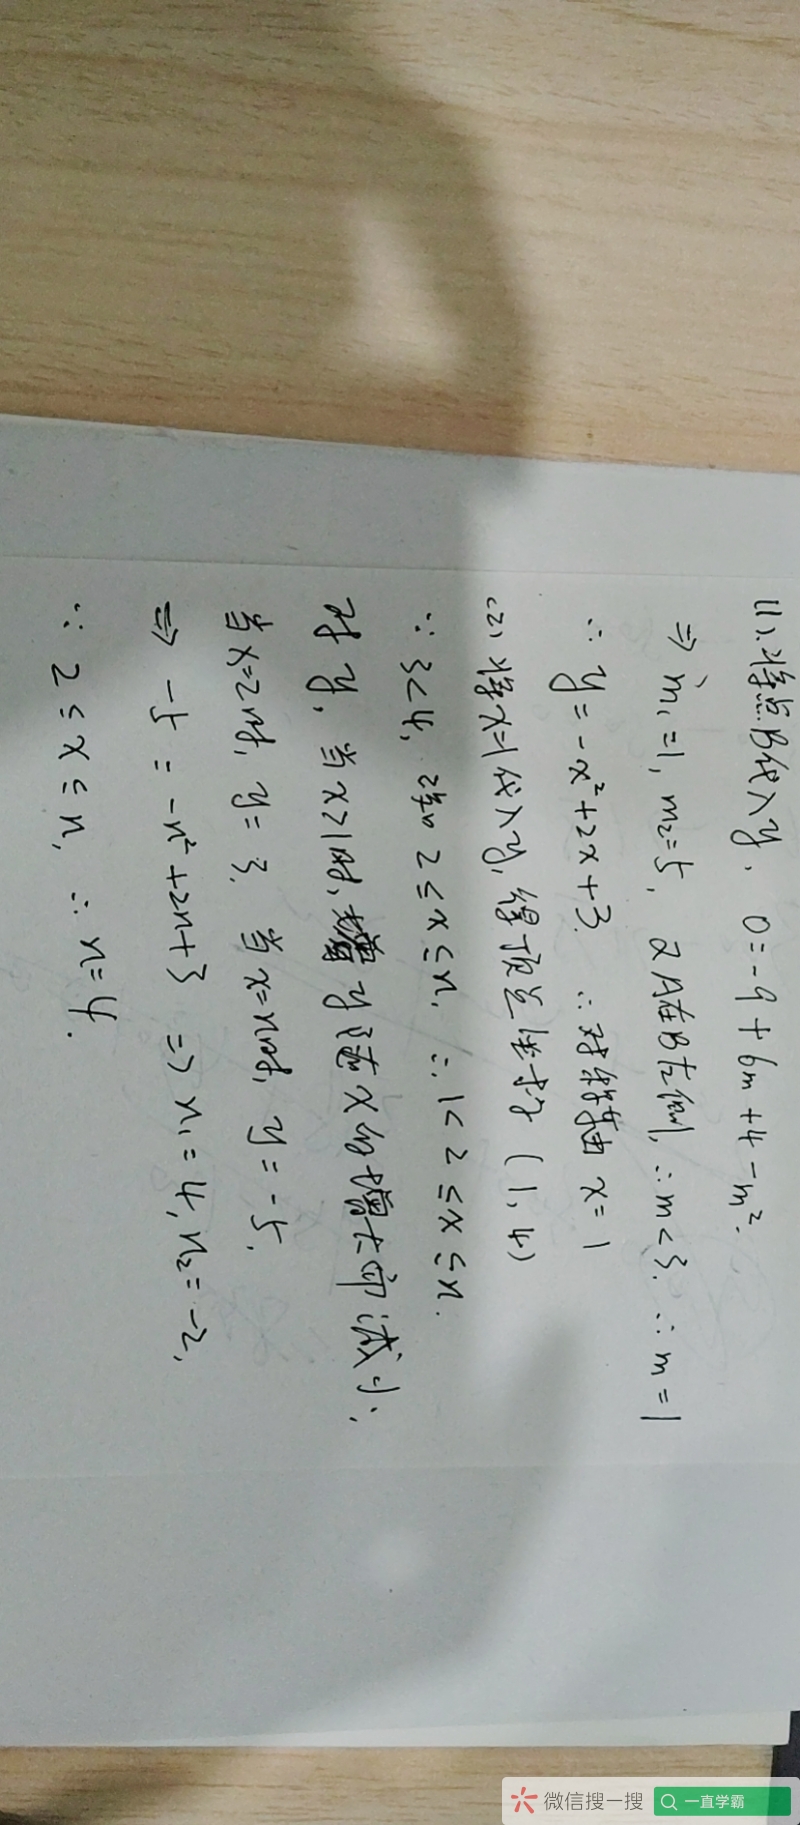 (1)、将点B代入y，0=-9+6m+4-m².
⇒ m₁=1, m₂=5, 又A在B左侧, ∴m<3. ∴m=1
∴ y=-x²+2x+3. ∴对称轴 x=1
(2)、将x=1代入y, 得顶点坐标 (1,4)
∵ 3<4, 且2≤x≤n, ∴1<2≤x≤n.
对y, 当x>1时, y随x的增大而减小,
当x=2时, y=3. 当x=n时, y=-5.
⇒ -5=-n²+2n+3 ⇒ n₁=4, n₂=-2,
∵ 2≤x≤n, ∴n=4.
微信搜一搜 一直学霸